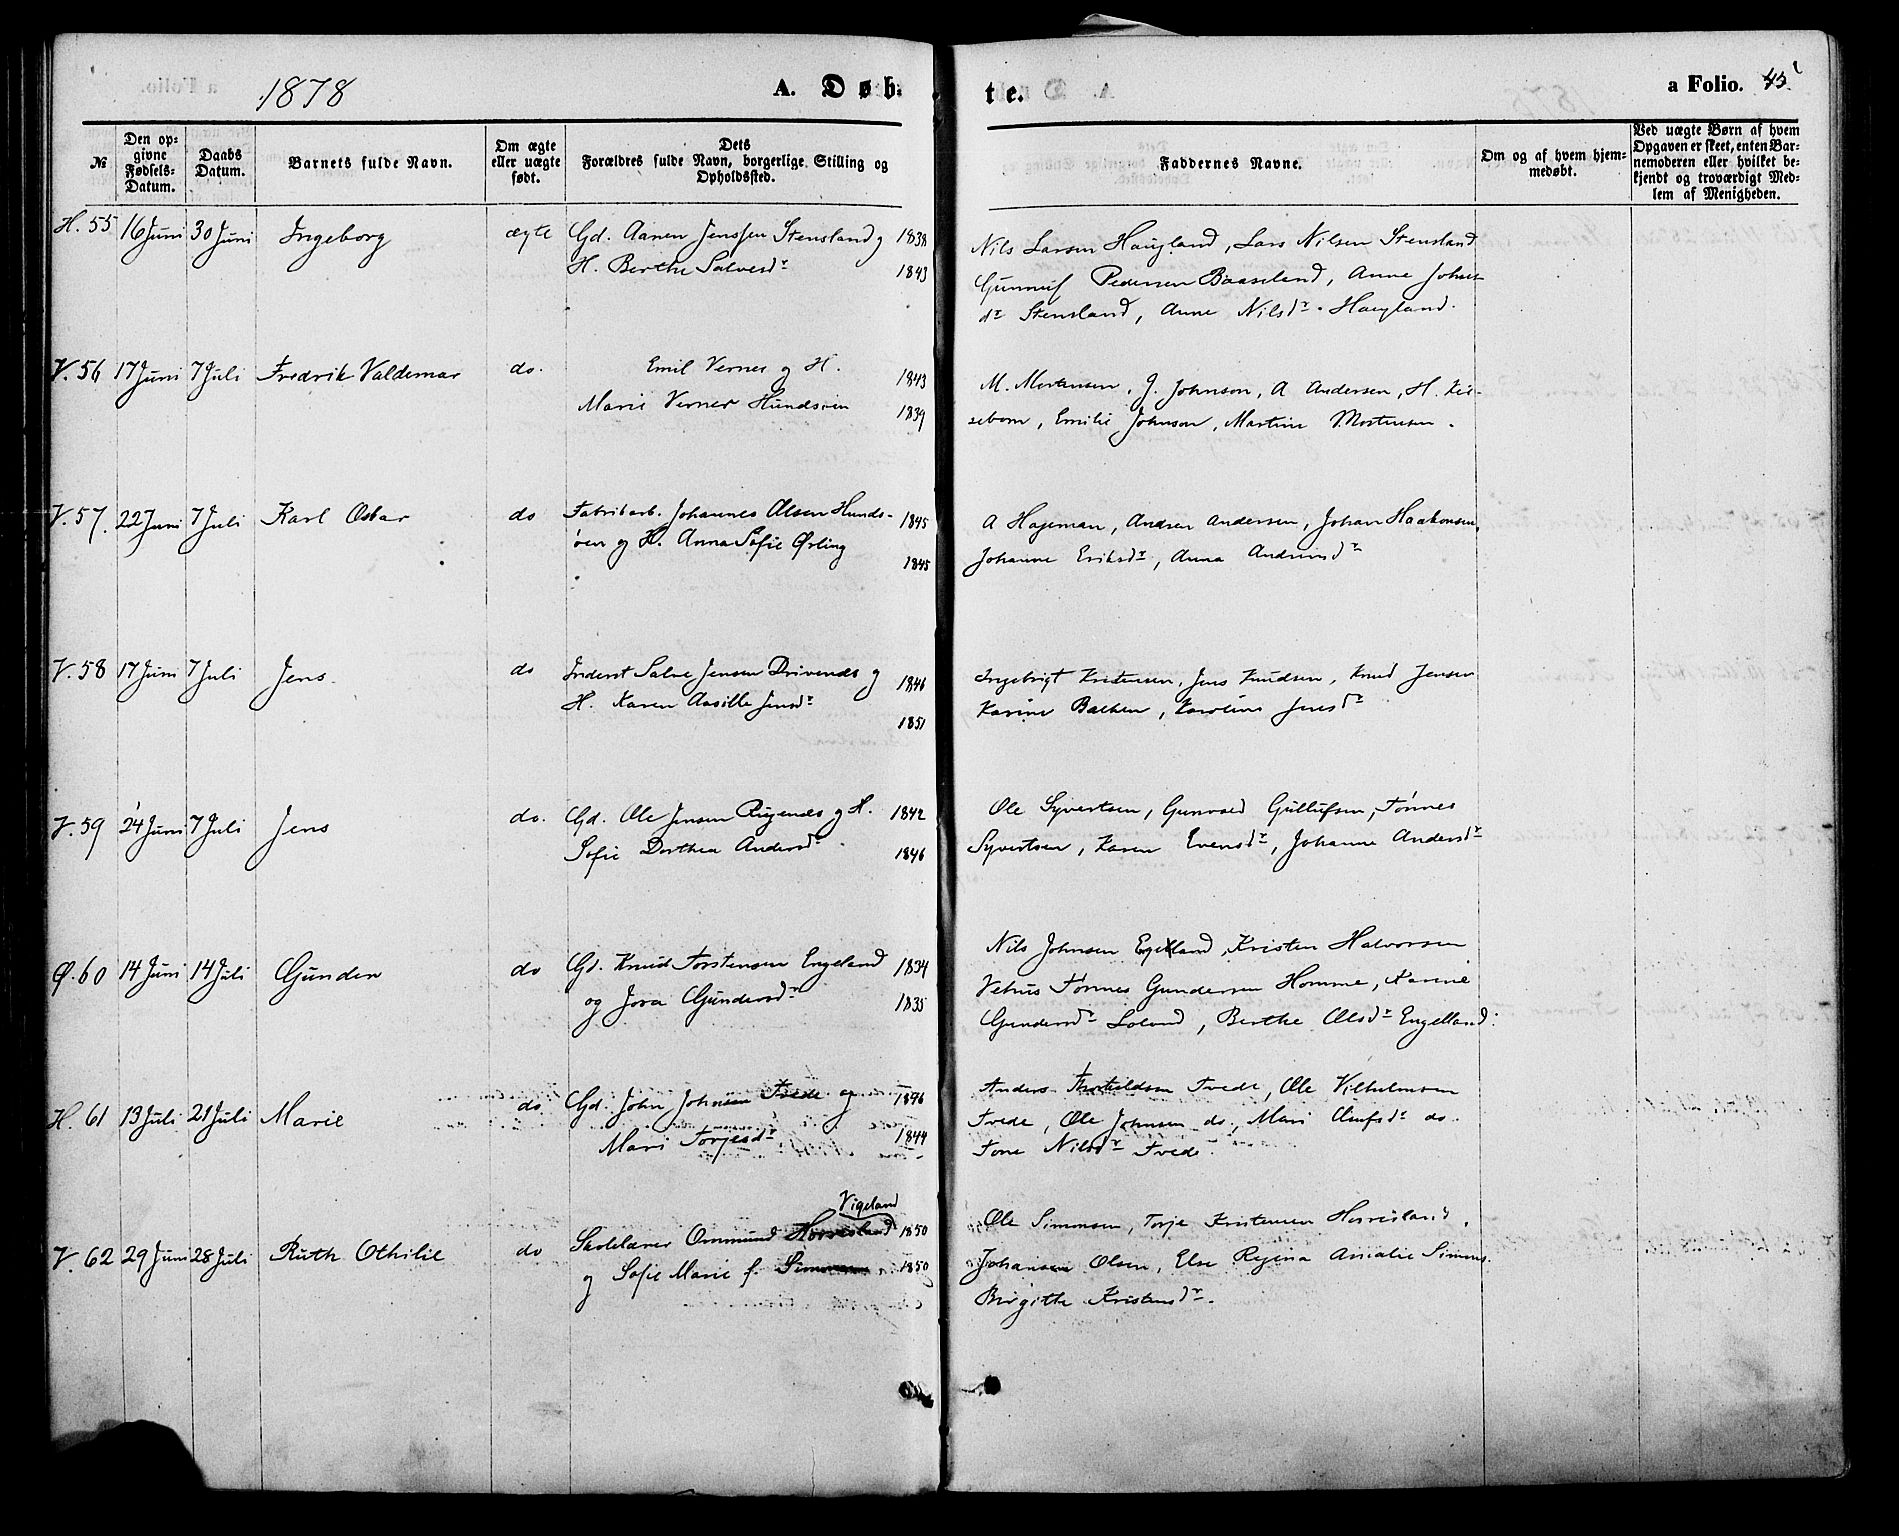 1878
A. Døb-
te.
a Folio. 45
№
Den op-
givne
Fødsels-
Datum.
Daabs
Datum.
Barnets fulde Navn.
Om ægte
eller uægte
født.
Dets
Forældres fulde Navn, borgerlige Stilling og
Opholdssted.
Faddernes Navne.
Om og af hvem hjem-
medøbt.
Ved uægte Børn af hvem
Opgaven er skeet, enten Bar-
nemoderen eller hvilket be-
kjendt og troværdigt Med-
lem af Menigheden.
H. 55 16 Juni 30 Juni Ingeborg ægte Gd. Aanen Jenssen Stensland og 1838
H. Berthe Salvesdr 1843
Nils Larsen Haugland, Lars Nilsen Stensland
Gunnuf Pedersen Baaseland, Anne Johns-
dr Stensland, Anne Nilsdr Haugland.
V. 56 17 Juni 7 Juli Fredrik Valdemar do. Emil Verner og H. 1843
Marie Verner Hundsøen 1839
M. Mortensen, J. Johnson, A Andersen, H.
Emilie Johnson, Martine Mortensen.
V. 57. 22 Juni 7 Juli Karl Oskar do Fabrikarb. Johannes Olsen Hunds- 1845
øen og H. Anna Sofie Ørling 1845
A Hageman, Andrea Andersen, Johan Haakonsen,
Johanne Eriksdr, Anna
V. 58 17 Juni 7 Juli Jens do Inderst Salve Jensen Drivenes og 1846
H. Karen Aasille Jensdr 1851
Ingebrigt Kristensen, Jens Knudsen, Knud Jensen
Karine Bakken, Karoline Jensdr
V. 59 24 Juni 7 Juli Jens do. Gd. Ole Jensen Rugenes og H. 1842
Sofie Dorthea Andersdr 1846
Ole Syvertsen, Gunvald Gullufsen, Tønnes
Syvertsen, Karen Evensdr, Johanne Andersdr
Ø. 60 14 Juni 14 Juli Gunder do Gd. Knud Torstensen Engeland 1834
og Jora Gundersdr 1835
Nils Johnsen Egeland, Kristen Halvorsen
Vehus Tønnes Gundersen Homme, Karine
Gundersdr Loland, Berthe Olsdr Engelland.
H. 61 13 Juli 21 Juli Marie do Gd. John Johnsen Tvede og 1846
Mari Torjesdr 1844
Anders Tvede, Ole Vilhelmsen
Tvede, Ole Johnsen do, Mari do.
Tone Nilsdr Tvede.
Vigeland
V. 62 29 Juni 28 Juli Ruth Othilie do Skolelærer Ommund Horrisland 1850
og Sofie Marie f. Simonsen 1850
Ole Simonsen, Torje Kristensen Horrisland,
Johansen Olsen, Else Regina Amalie Simons.
Birgitte Kristensdr.